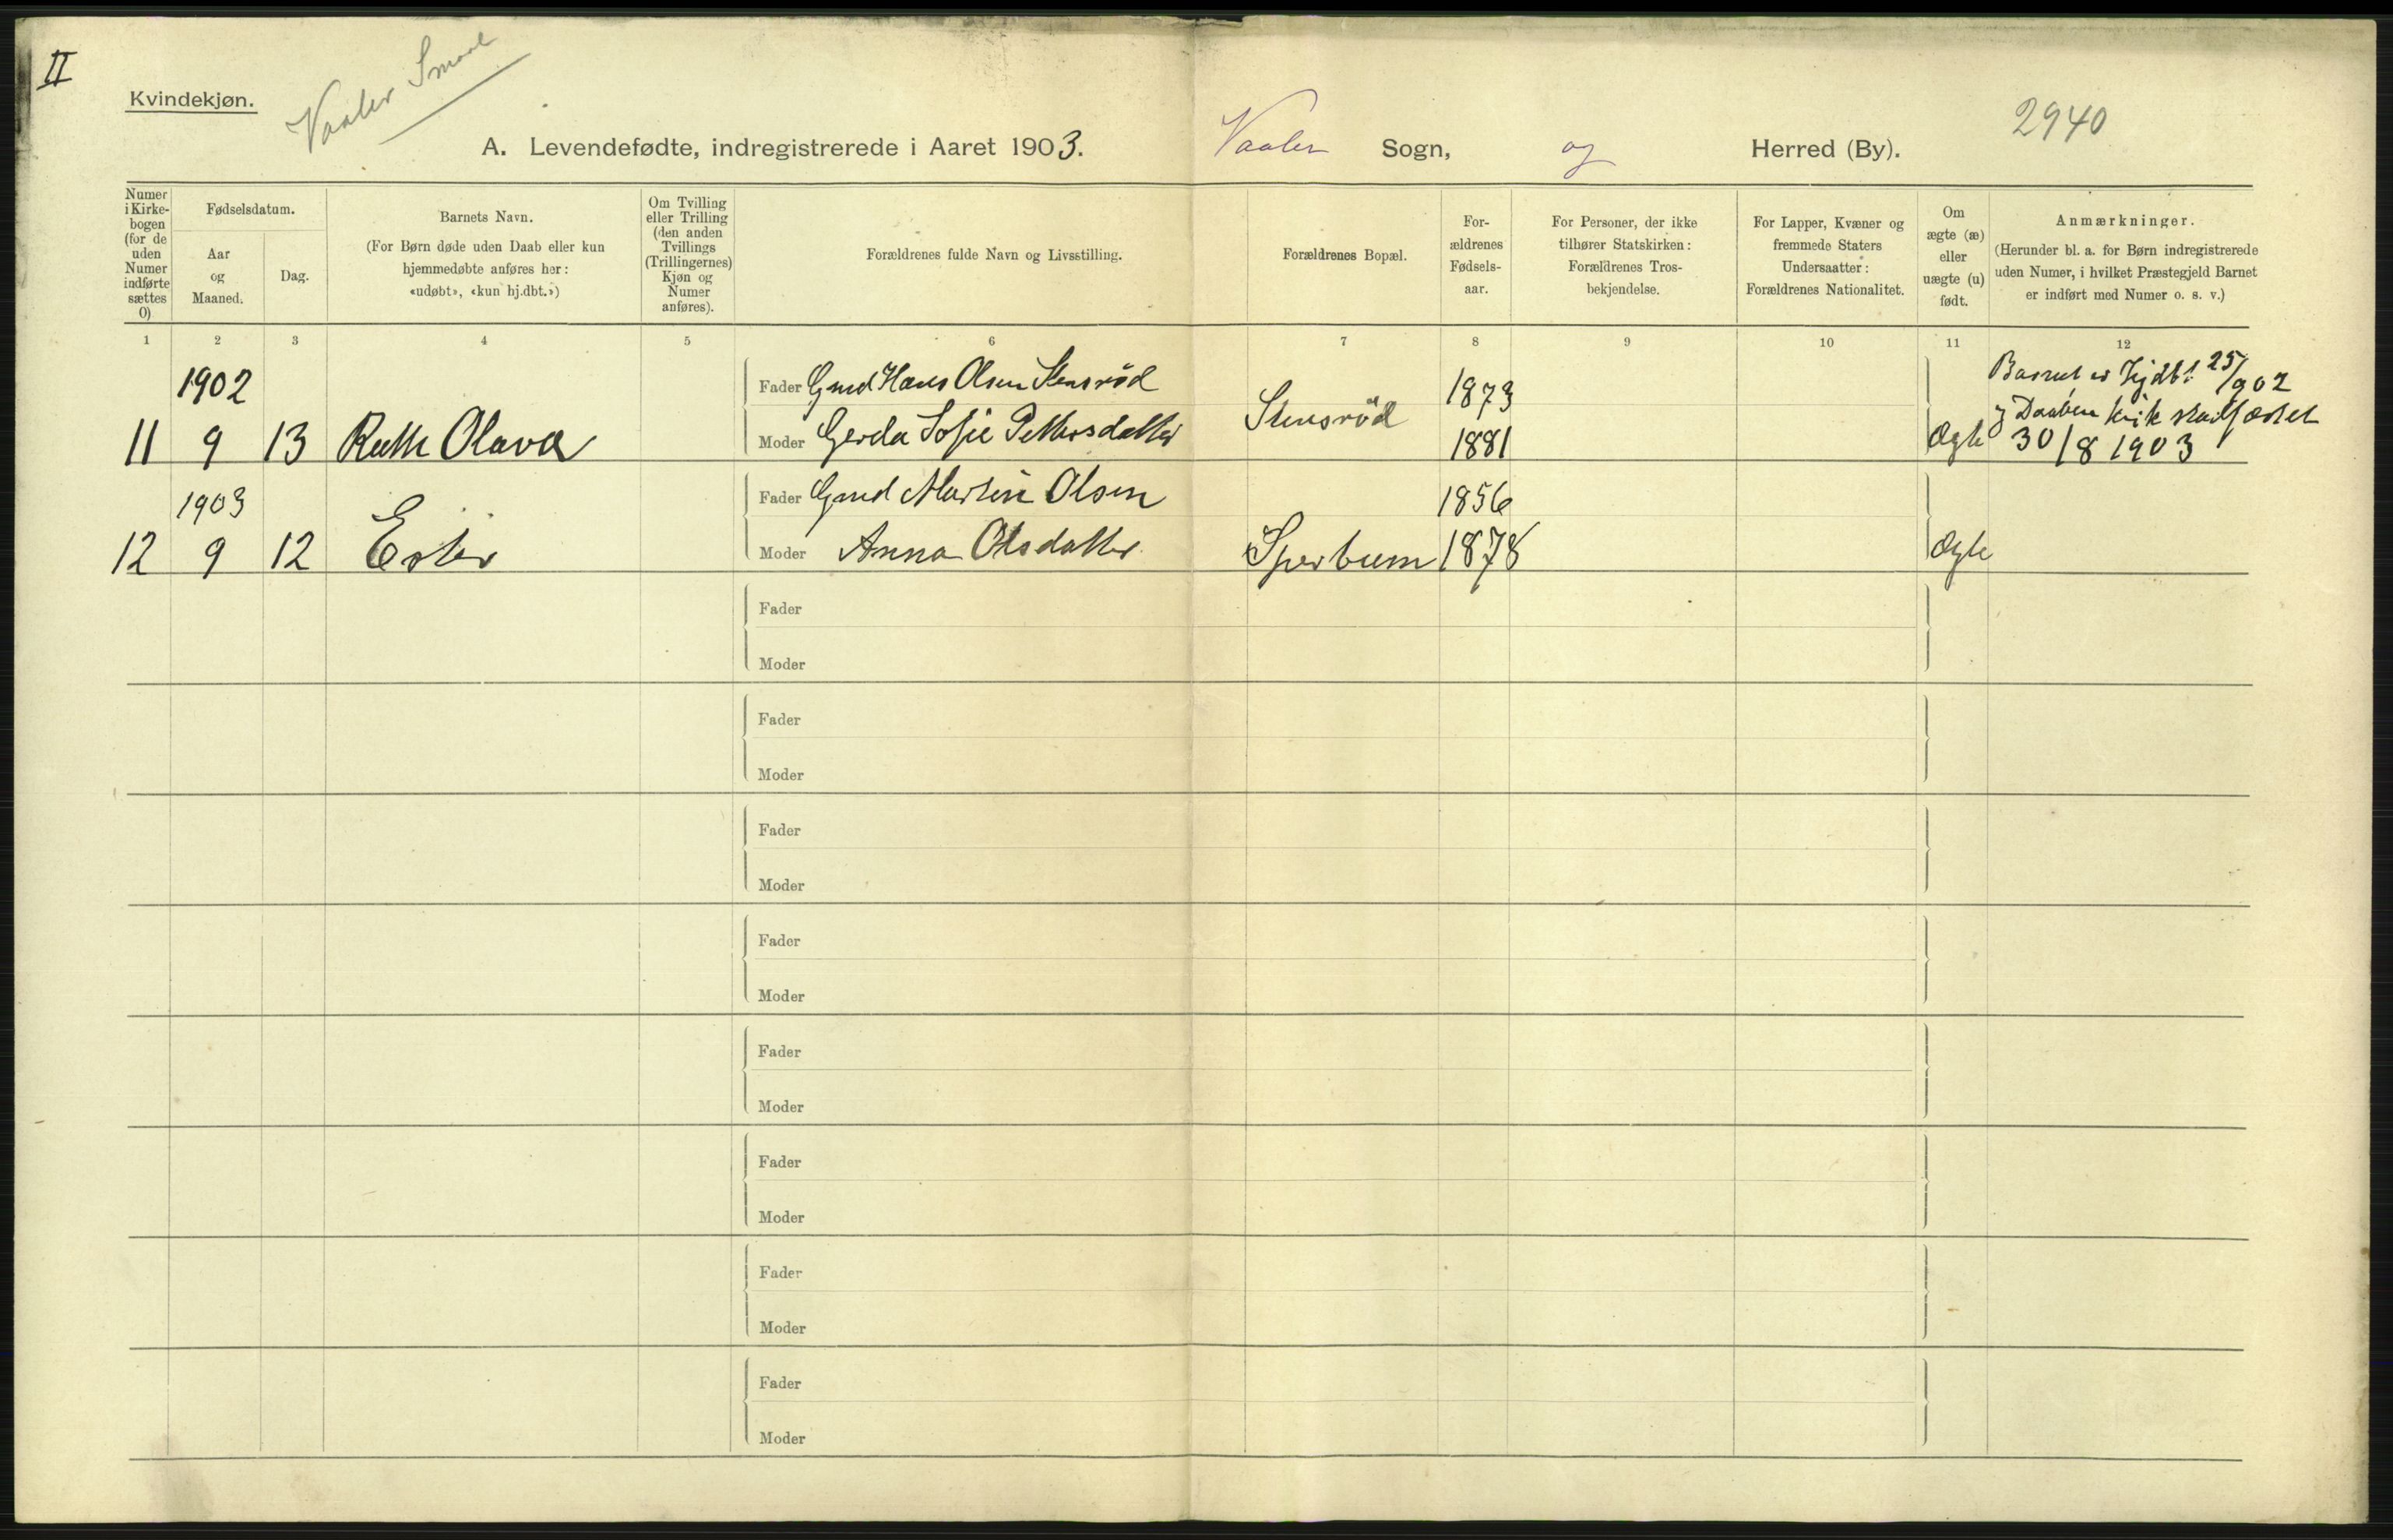 II
Kvindekjøn.
Vaaler Smaal
2940
A. Levendefødte, indregistrerede i Aaret 1903. Vaaler Sogn, og Herred (By).
Numer i Kirkebogen (for de uden Numer indførte sættes 0)
Fødselsdatum.
Aar og Maaned.
Dag.
Barnets Navn.
(For Børn døde uden Daab eller kun hjemmedøbte anføres her: «udøbt», «kun hj.dbt.»)
Om Tvilling eller Trilling (den anden Tvillings (Trillingernes) Kjøn og Numer anføres).
Forældrenes fulde Navn og Livsstilling.
Forældrenes Bopæl.
Forældrenes Fødselsaar.
For Personer, der ikke tilhører Statskirken: Forældrenes Trosbekjendelse.
For Lapper, Kvæner og fremmede Staters Undersaatter: Forældrenes Nationalitet.
Om ægte (æ) eller uægte (u) født.
Anmærkninger.
(Herunder bl. a. for Børn indregistrerede uden Numer, i hvilket Præstegjeld Barnet er indført med Numer o. s. v.)
1 2 3 4 5 6 7 8 9 10 11 12
1902 Fader Gmd Hans Olsen Stensröd 1873 Barnet er Hjdbt 25/9 02
11 9 13 Ruth Olava Moder Gerda Sofie Pettersdatter Stensröd 1881 Ægte Daaben stadfæstet
30/8 1903
1903 Fader Gmd Martin Olsen 1856
12 9 12 Ester Moder Anna Olsdatter Sperbum 1878 Ægte
Fader
Moder
Fader
Moder
Fader
Moder
Fader
Moder
Fader
Moder
Fader
Moder
Fader
Moder
Fader
Moder